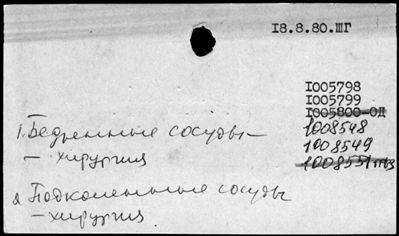 18.8.80.ШГ
I005798
I005799
I005800-ОД
1. Бедренные сосуды – 1008548
– хирургия 1008549
1008551
2. Подколенные сосуды
– хирургия